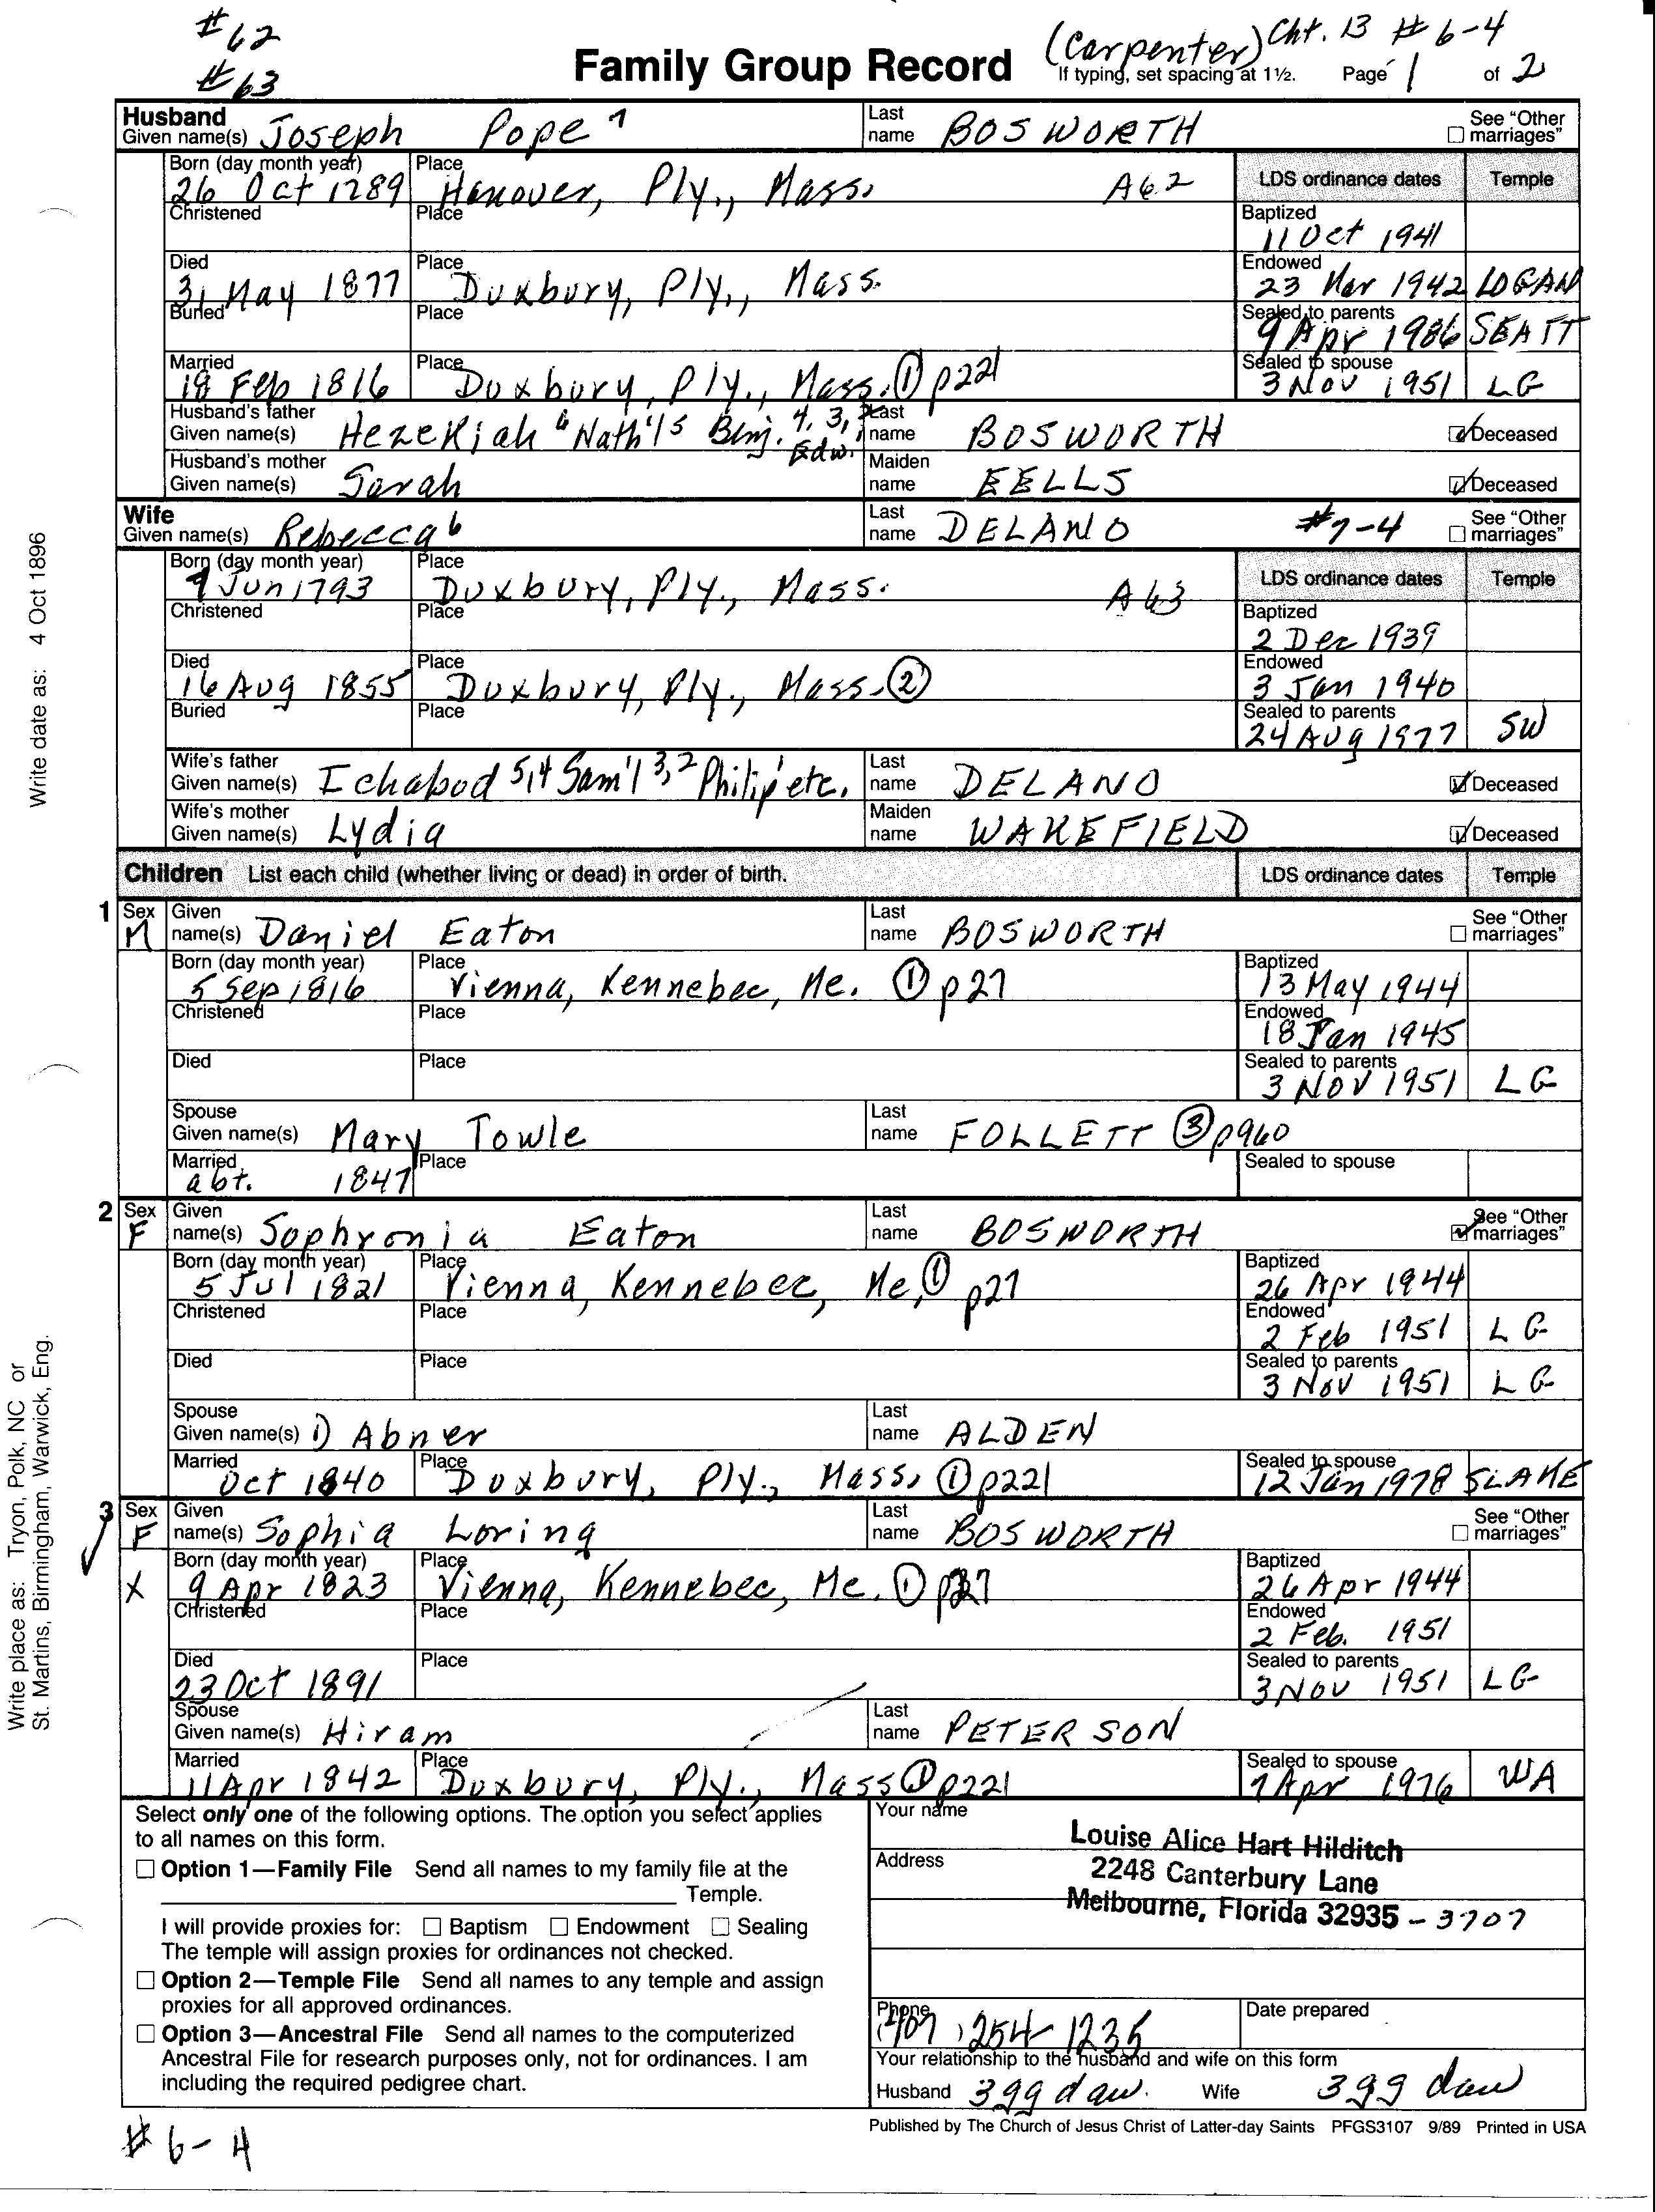 #62
#63
Family Group Record
(Carpenter) Cht. 13 #6-4
If typing, set spacing at 1½. Page 1 of 2
Husband
Given name(s) Joseph Pope 7 Last name BOSWORTH See "Other marriages"
Born (day month year) 26 Oct 1789 Place Hanover, Ply., Mass. A62 LDS ordinance dates Temple
Christened Place Baptized 11 Oct 1941
Died 31 May 1877 Place Duxbury, Ply., Mass. Endowed 23 Mar 1942 LOGAN
Buried Place Sealed to parents 9 Apr 1986 SEATT
Married 18 Feb 1816 Place Duxbury, Ply., Mass. ① p221 Sealed to spouse 3 Nov 1951 LG
Husband's father Given name(s) Hezekiah 6 Nath'l 5 Benj. 4, 3, Edw. Last name BOSWORTH Deceased
Husband's mother Given name(s) Sarah Maiden name EELLS Deceased
Wife
Given name(s) Rebecca 6 Last name DELANO #7-4 See "Other marriages"
Born (day month year) 9 Jun 1793 Place Duxbury, Ply., Mass. A63 LDS ordinance dates Temple
Christened Place Baptized 2 Dec 1939
Died 16 Aug 1855 Place Duxbury, Ply., Mass. ② Endowed 3 Jan 1940
Buried Place Sealed to parents 24 Aug 1977 SW
Wife's father Given name(s) Ichabod 5,4 Sam'l 3,2 Philip' etc. Last name DELANO Deceased
Wife's mother Given name(s) Lydia Maiden name WAKEFIELD Deceased
Children List each child (whether living or dead) in order of birth. LDS ordinance dates Temple
1 Sex M Given name(s) Daniel Eaton Last name BOSWORTH See "Other marriages"
Born (day month year) 5 Sep 1816 Place Vienna, Kennebec, Me. ① p27 Baptized 13 May 1944
Christened Place Endowed 18 Jan 1945
Died Place Sealed to parents 3 Nov 1951 LG
Spouse Given name(s) Mary Towle Last name FOLLETT ③ p960
Married abt. 1847 Place Sealed to spouse
2 Sex F Given name(s) Sophronia Eaton Last name BOSWORTH See "Other marriages"
Born (day month year) 5 Jul 1821 Place Vienna, Kennebec, Me, ① p27 Baptized 26 Apr 1944
Christened Place Endowed 2 Feb 1951 LG
Died Place Sealed to parents 3 Nov 1951 LG
Spouse Given name(s) 1) Abner Last name ALDEN
Married Oct 1840 Place Duxbury, Ply., Mass, ① p221 Sealed to spouse 12 Jan 1978 SLAKE
3 Sex F Given name(s) Sophia Loring Last name BOSWORTH See "Other marriages"
X Born (day month year) 9 Apr 1823 Place Vienna, Kennebec, Me. ① Baptized 26 Apr 1944
Christened Place Endowed 2 Feb. 1951
Died 23 Oct 1891 Place Sealed to parents 3 Nov 1951 LG
Spouse Given name(s) Hiram Last name PETERSON
Married 11 Apr 1842 Place Duxbury, Ply., Mass ① p221 Sealed to spouse 7 Apr 1976 WA
Select only one of the following options. The option you select applies
to all names on this form.
Option 1—Family File Send all names to my family file at the
Temple.
I will provide proxies for: Baptism Endowment Sealing
The temple will assign proxies for ordinances not checked.
Option 2—Temple File Send all names to any temple and assign
proxies for all approved ordinances.
Option 3—Ancestral File Send all names to the computerized
Ancestral File for research purposes only, not for ordinances. I am
including the required pedigree chart.
Your name Louise Alice Hart Hilditch
Address 2248 Canterbury Lane
Melbourne, Florida 32935 - 3707
Phone (407) 254-1235 Date prepared
Your relationship to the husband and wife on this form
Husband 3gg daw. Wife 3gg daw
Published by The Church of Jesus Christ of Latter-day Saints PFGS3107 9/89 Printed in USA
#6-4
Write date as: 4 Oct 1896
Write place as: Tryon, Polk, NC or
St. Martins, Birmingham, Warwick, Eng.